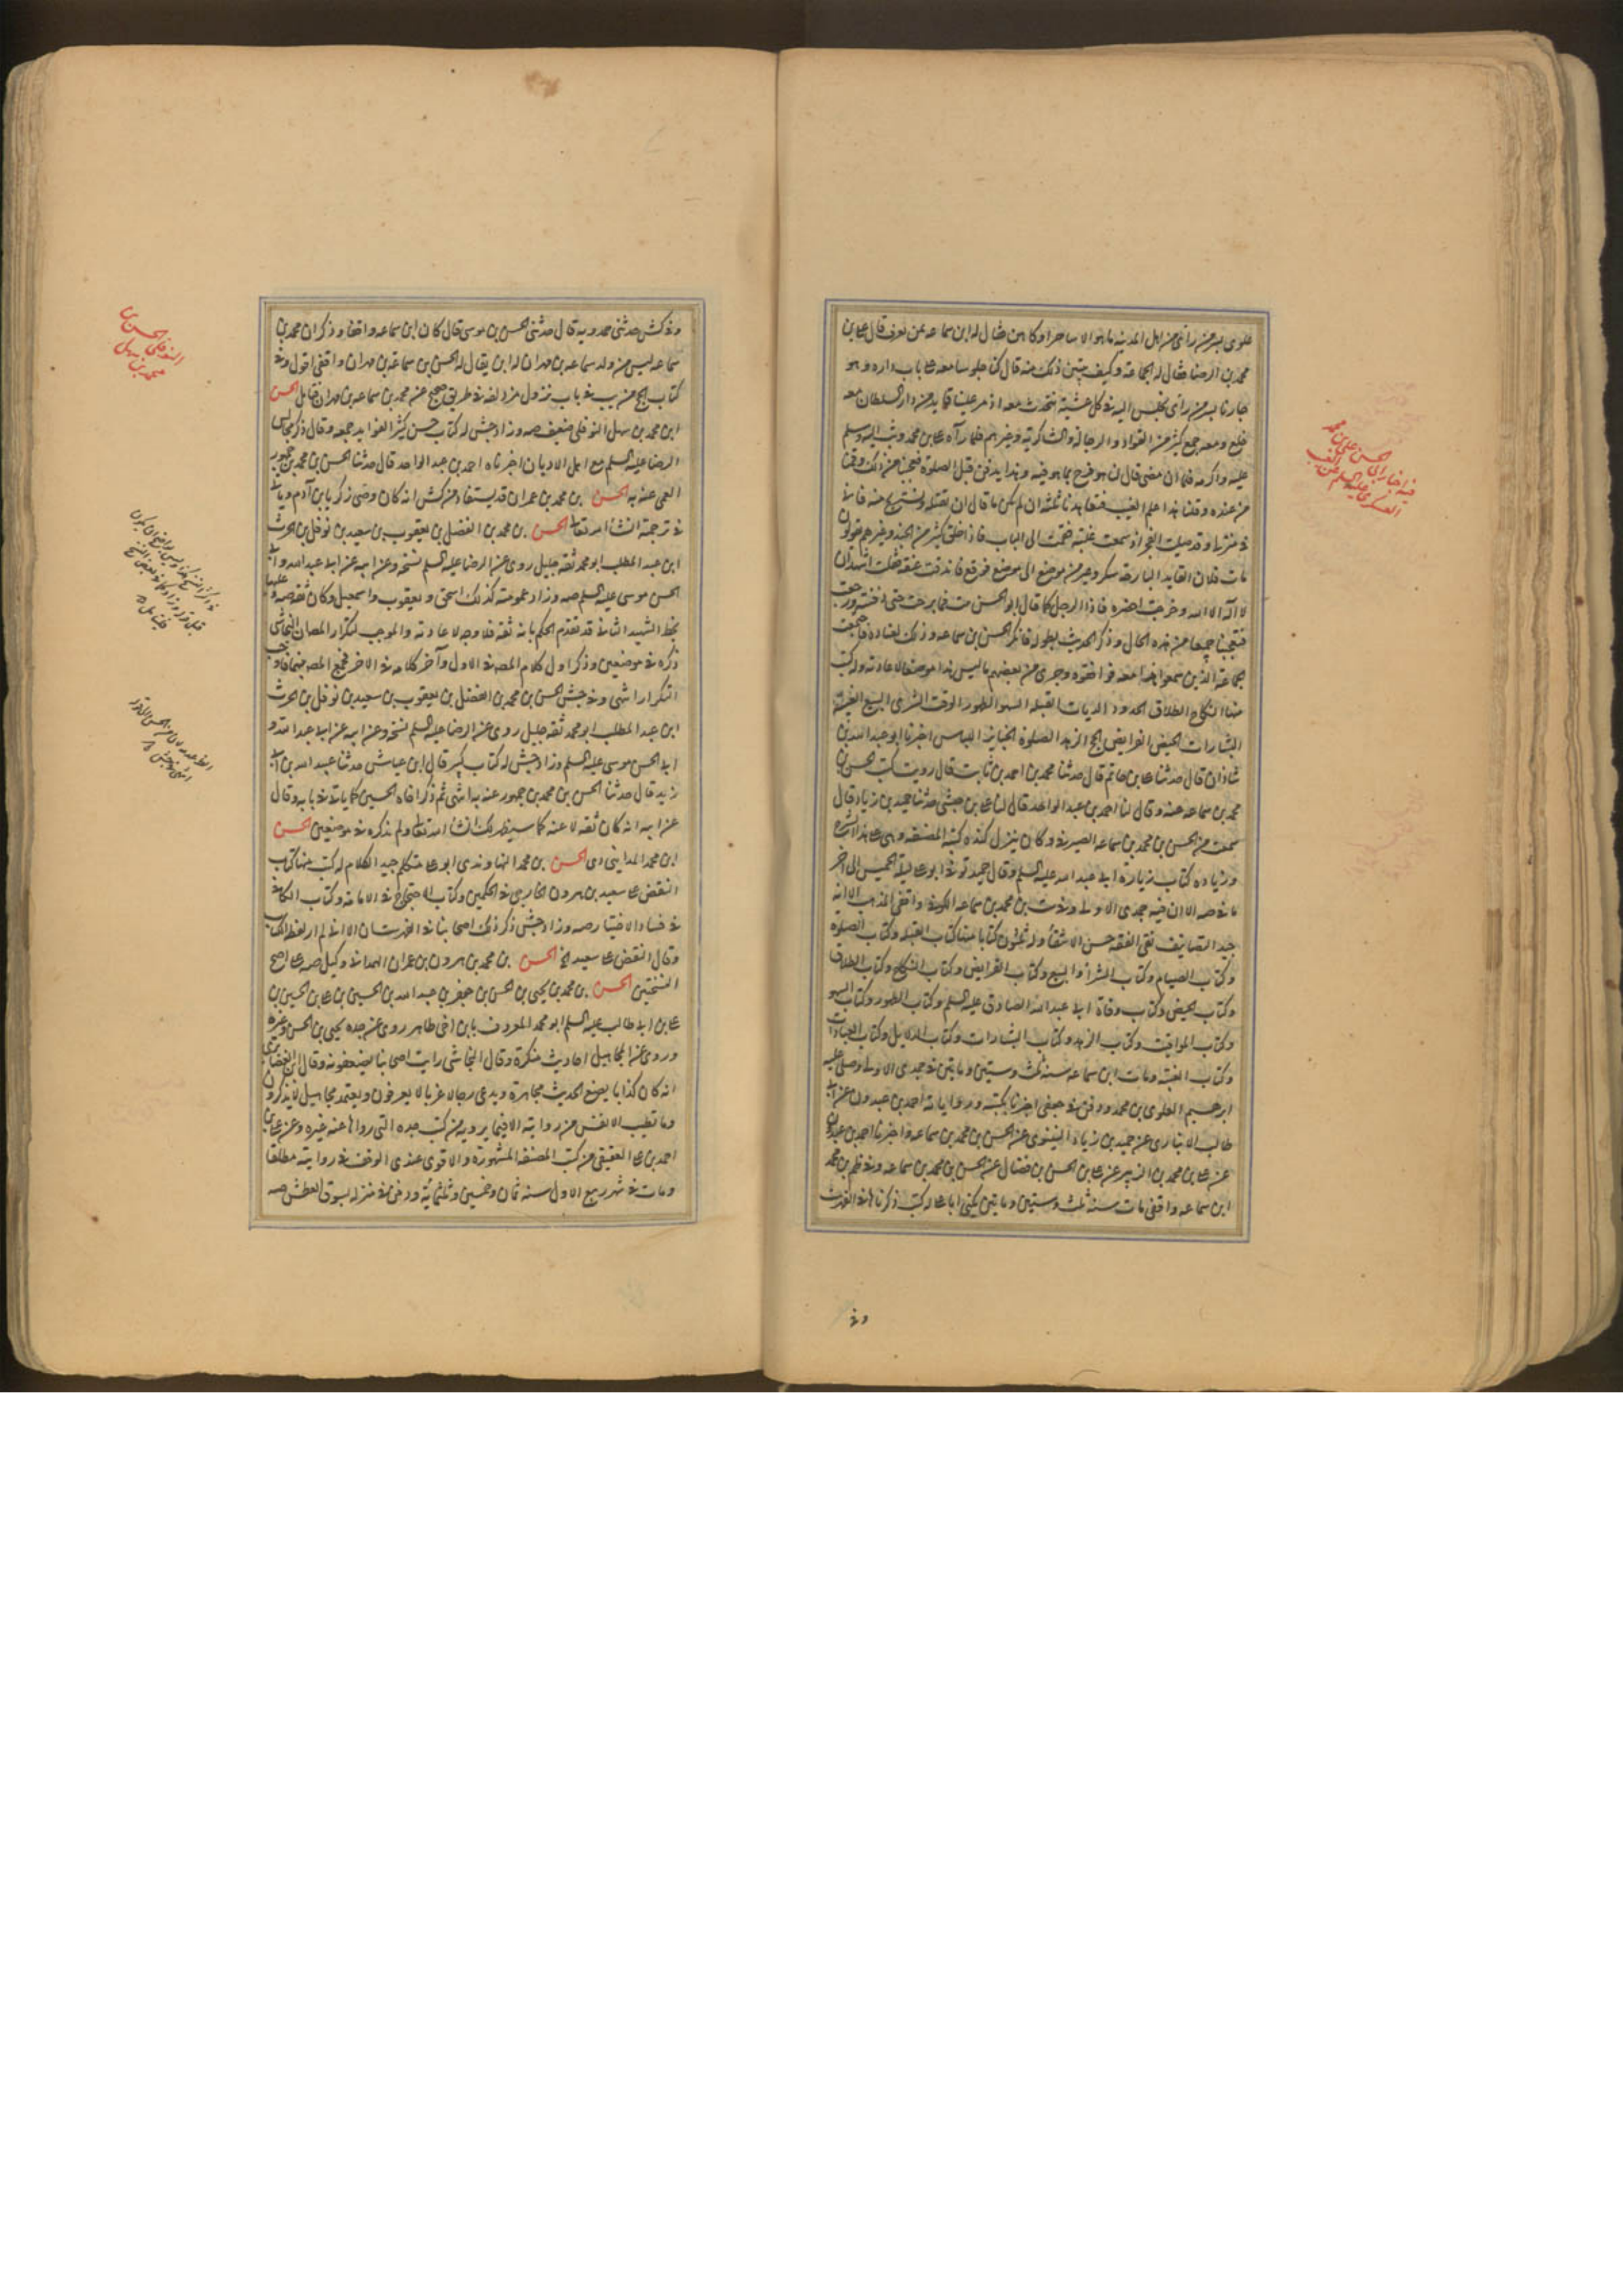 علوى بسر من راى من اهل المدينة ما هو الا ساحرا وكاهن فقال له ابن سماعه بمن يعرف قال على بن
محمد بن الرضا فقال له الجماعة وكيف تبينت ذلك منه قال كنا جلوسا معه على باب داره وهو
جارنا بسر من راى نجلس اليه فى كل عشية نتحدث معه اذ مر علينا قايد من دار السلطان معه
خلع ومعه جمع كثير من القواد والرجالة والشاكرية وغيرهم فلما رآه على بن محمد وثب اليه وسلم
عليه واكرمه فلما ان مضى قال لنا هو فرح بما هو فيه وغدا يدفن قبل الصلوة فعجبنا من ذلك وقمنا
من عنده وقلنا هذا علم الغيب فتعاهدنا ثلثة ان لم يكن ما قال ان نقتله ونستريح منه فانى
فى منزلى وقد صليت الفجر اذ سمعت غلبة فقمت الى الباب فاذا خلق كثير من الجند وغيرهم يقولون
مات فلان القايد البارحة سكر وعبر من موضع الى موضع فوقع فاندقت عنقه فقلت اشهد ان
لا اله الا الله وخرجت احضره فاذا الرجل كما قال ابو الحسن ميت فما برحت حتى دفنته ورجعت
فتعجبنا جميعا من هذه الحال وذكر الحديث بطوله فانكر الحسن بن سماعه وذلك لعناده فاجتمعت
الجماعة الذين سمعوا هذا معه فوافقوه وجرى من بعضهم ما ليس هذا موضعا لاعادته وله كتب
منها النكاح الطلاق الحدود الديات القبلة السهو الطهور الوقت الشرى البيع الغيبة
البشارات الحيض الفرايض الحج الزهد الصلوة الجنايز اللباس اخبرنا ابو عبد الله بن
شاذان قال حدثنا على بن حاتم قال حدثنا محمد بن احمد بن ثابت قال رويت كتب الحسن بن
محمد بن سماعه عنه وقال لنا احمد بن عبد الواحد قال لنا على بن حبشى حدثنا حميد بن زياد قال
سمعت من الحسن بن محمد بن سماعه الصيرفى وكان ينزل كنده كتبه المصنفة وهى على هذا الشرح
وزيادة كتاب زيارة ابى عبد الله عليه السلم وقال حميد توفى ابو على ليلة الخميس الى اخر
ما فى صه الا ان فيه جمدى الاولى وفى ست بن محمد بن سماعه الكوفى واقفى المذهب الا انه
جيد التصانيف نقى الفقه حسن الانتقاء وله ثلثون كتابا منها كتاب القبلة وكتاب الصلوة
وكتاب الصيام وكتاب الشراء والبيع وكتاب الفرايض وكتاب النكاح وكتاب الطلاق
وكتاب الحيض وكتاب وفاة ابى عبد الله الصادق عليه السلم وكتاب الطهور وكتاب السهو
وكتاب المواقيت وكتاب الزهد وكتاب البشارات وكتاب الدلايل وكتاب العبادات
وكتاب الغيبة ومات ابن سماعه سنة ثلث وستين ومايتين فى جمدى الاولى وصلى عليه
ابرهيم العلوى بن محمد ودفن فى جعفى اخبرنا بكتبه ورواياته احمد بن عبدون عن ابى
طالب الانبارى عن حميد بن زياد النينوى عن الحسن بن محمد بن سماعه واخبرنا احمد بن عبدون
عن على بن محمد بن الزبير عن على بن الحسن بن فضال عن الحسن بن محمد بن سماعه وفى ظم بن محمد
ابن سماعه واقفى مات سنة ثلث وستين ومايتين يكنى ابا على له كتب ذكرناها فى الفهرست
وفى
فيه اخبار ابى الحسن على بن محمد
العسكرى عليه السلم عن الغيب
وفى كش حدثنى حمدويه قال حدثنى الحسن بن موسى قال كان ابن سماعه واقفا وذكر ان محمد بن
سماعه ليس من ولد سماعه بن مهران له ابن يقال له الحسن بن سماعه بن مهران واقفى اقول وفى
كتاب الحج من يب فى باب نزول مزدلفة فى طريق صحيح عن محمد بن سماعه بن مهران فتامل الحسن
ابن محمد بن سهل النوفلى ضعيف صه وزاد جش له كتاب حسن كثير الفوايد جمعه وقال ذكر مجالس
الرضا عليه السلم مع اهل الاديان اخبرناه احمد بن عبد الواحد قال حدثنا الحسن بن محمد بن جمهور
العمى عنه به الحسن بن محمد بن عمران قد يستفاد من كش انه كان وصى زكريا بن آدم وياتى
فى ترجمة انشا الله تعالى الحسن بن محمد بن الفضل بن يعقوب بن سعيد بن نوفل بن الحرث
ابن عبد المطلب ابو محمد ثقة جليل روى عن الرضا عليه السلم نسخة وعن ابيه عن ابى عبد الله وابى
الحسن موسى عليهما السلم صه وزاد عمومته كذلك اسحق ويعقوب واسمعيل وكان ثقة صه و
بخط الشهيد الثانى قد تقدم الحكم بانه ثقة فلا وجه لاعادته والموجب لتكرار المص ان النجاشى
ذكره فى موضعين وذكر اول كلام المصه فى الاول وآخر كلامه فى الاخر فجمع المصه بينهما فاوجب
التكرار انتهى وفى جش الحسن بن محمد بن الفضل بن يعقوب بن سعيد بن نوفل بن الحرث
ابن عبد المطلب ابو محمد ثقة جليل روى عن الرضا عليه السلم نسخة وعن ابيه عن ابى عبد الله و
ابى الحسن موسى عليه السلم وزاد جش له كتاب كبير قال ابن عياش حدثنا عبيد الله بن ابى
زيد قال حدثنا الحسن بن محمد بن جمهور عنه به انتهى ثم ذكر اخاه الحسين كما ياتى فى بابه وقال
عن ابيه انه كان ثقة لا عنه كما سيظهر لك انشا الله تعالى ولم يذكره فى موضعين الحسن
ابن محمد المداينى دى الحسن بن محمد النهاوندى ابو على متكلم جيد الكلام له كتب منها كتاب
النقض على سعيد بن هرون الخارجى فى الحكمين وكتاب الاحتجاج فى الامامة وكتاب الكافى
فى فساد الاختيار صه وزاد جش ذكر ذلك اصحابنا فى الفهرستان الا انه لم ار لفظ الكتاب
وقال النقض على سعيد الخ الحسن بن محمد بن هرون بن عمران الهمدانى وكيل صه على اصح
النسختين الحسن بن محمد بن يحيى بن الحسن بن جعفر بن عبيد الله بن الحسين بن على بن الحسين بن
على بن ابى طالب عليه السلم ابو محمد المعروف بابن اخى طاهر روى عن جده يحيى بن الحسن وغيره
وروى عن المجاهيل احاديث منكرة وقال النجاشى رايت اصحابنا يضعفونه وقال ابن الغضايرى
انه كان كذابا يضع الحديث مجاهرة ويدعى رجالا غربا لا يعرفون ويعتمد مجاهيل لا يذكرون
وما تطيب الانفس من روايته الا فيما يرويه من كتب جده التى رواها عنه غيره وعن على بن
احمد بن على العقيقى من كتب المصنفة المشهورة والاقوى عندى الوقف فى روايته مطلقا
ومات فى شهر ربيع الاول سنة ثمان وخمسين وثلثمائة ودفن فى منزله بسوق العطش صه
النوفلى الحسن بن
محمد بن سهل